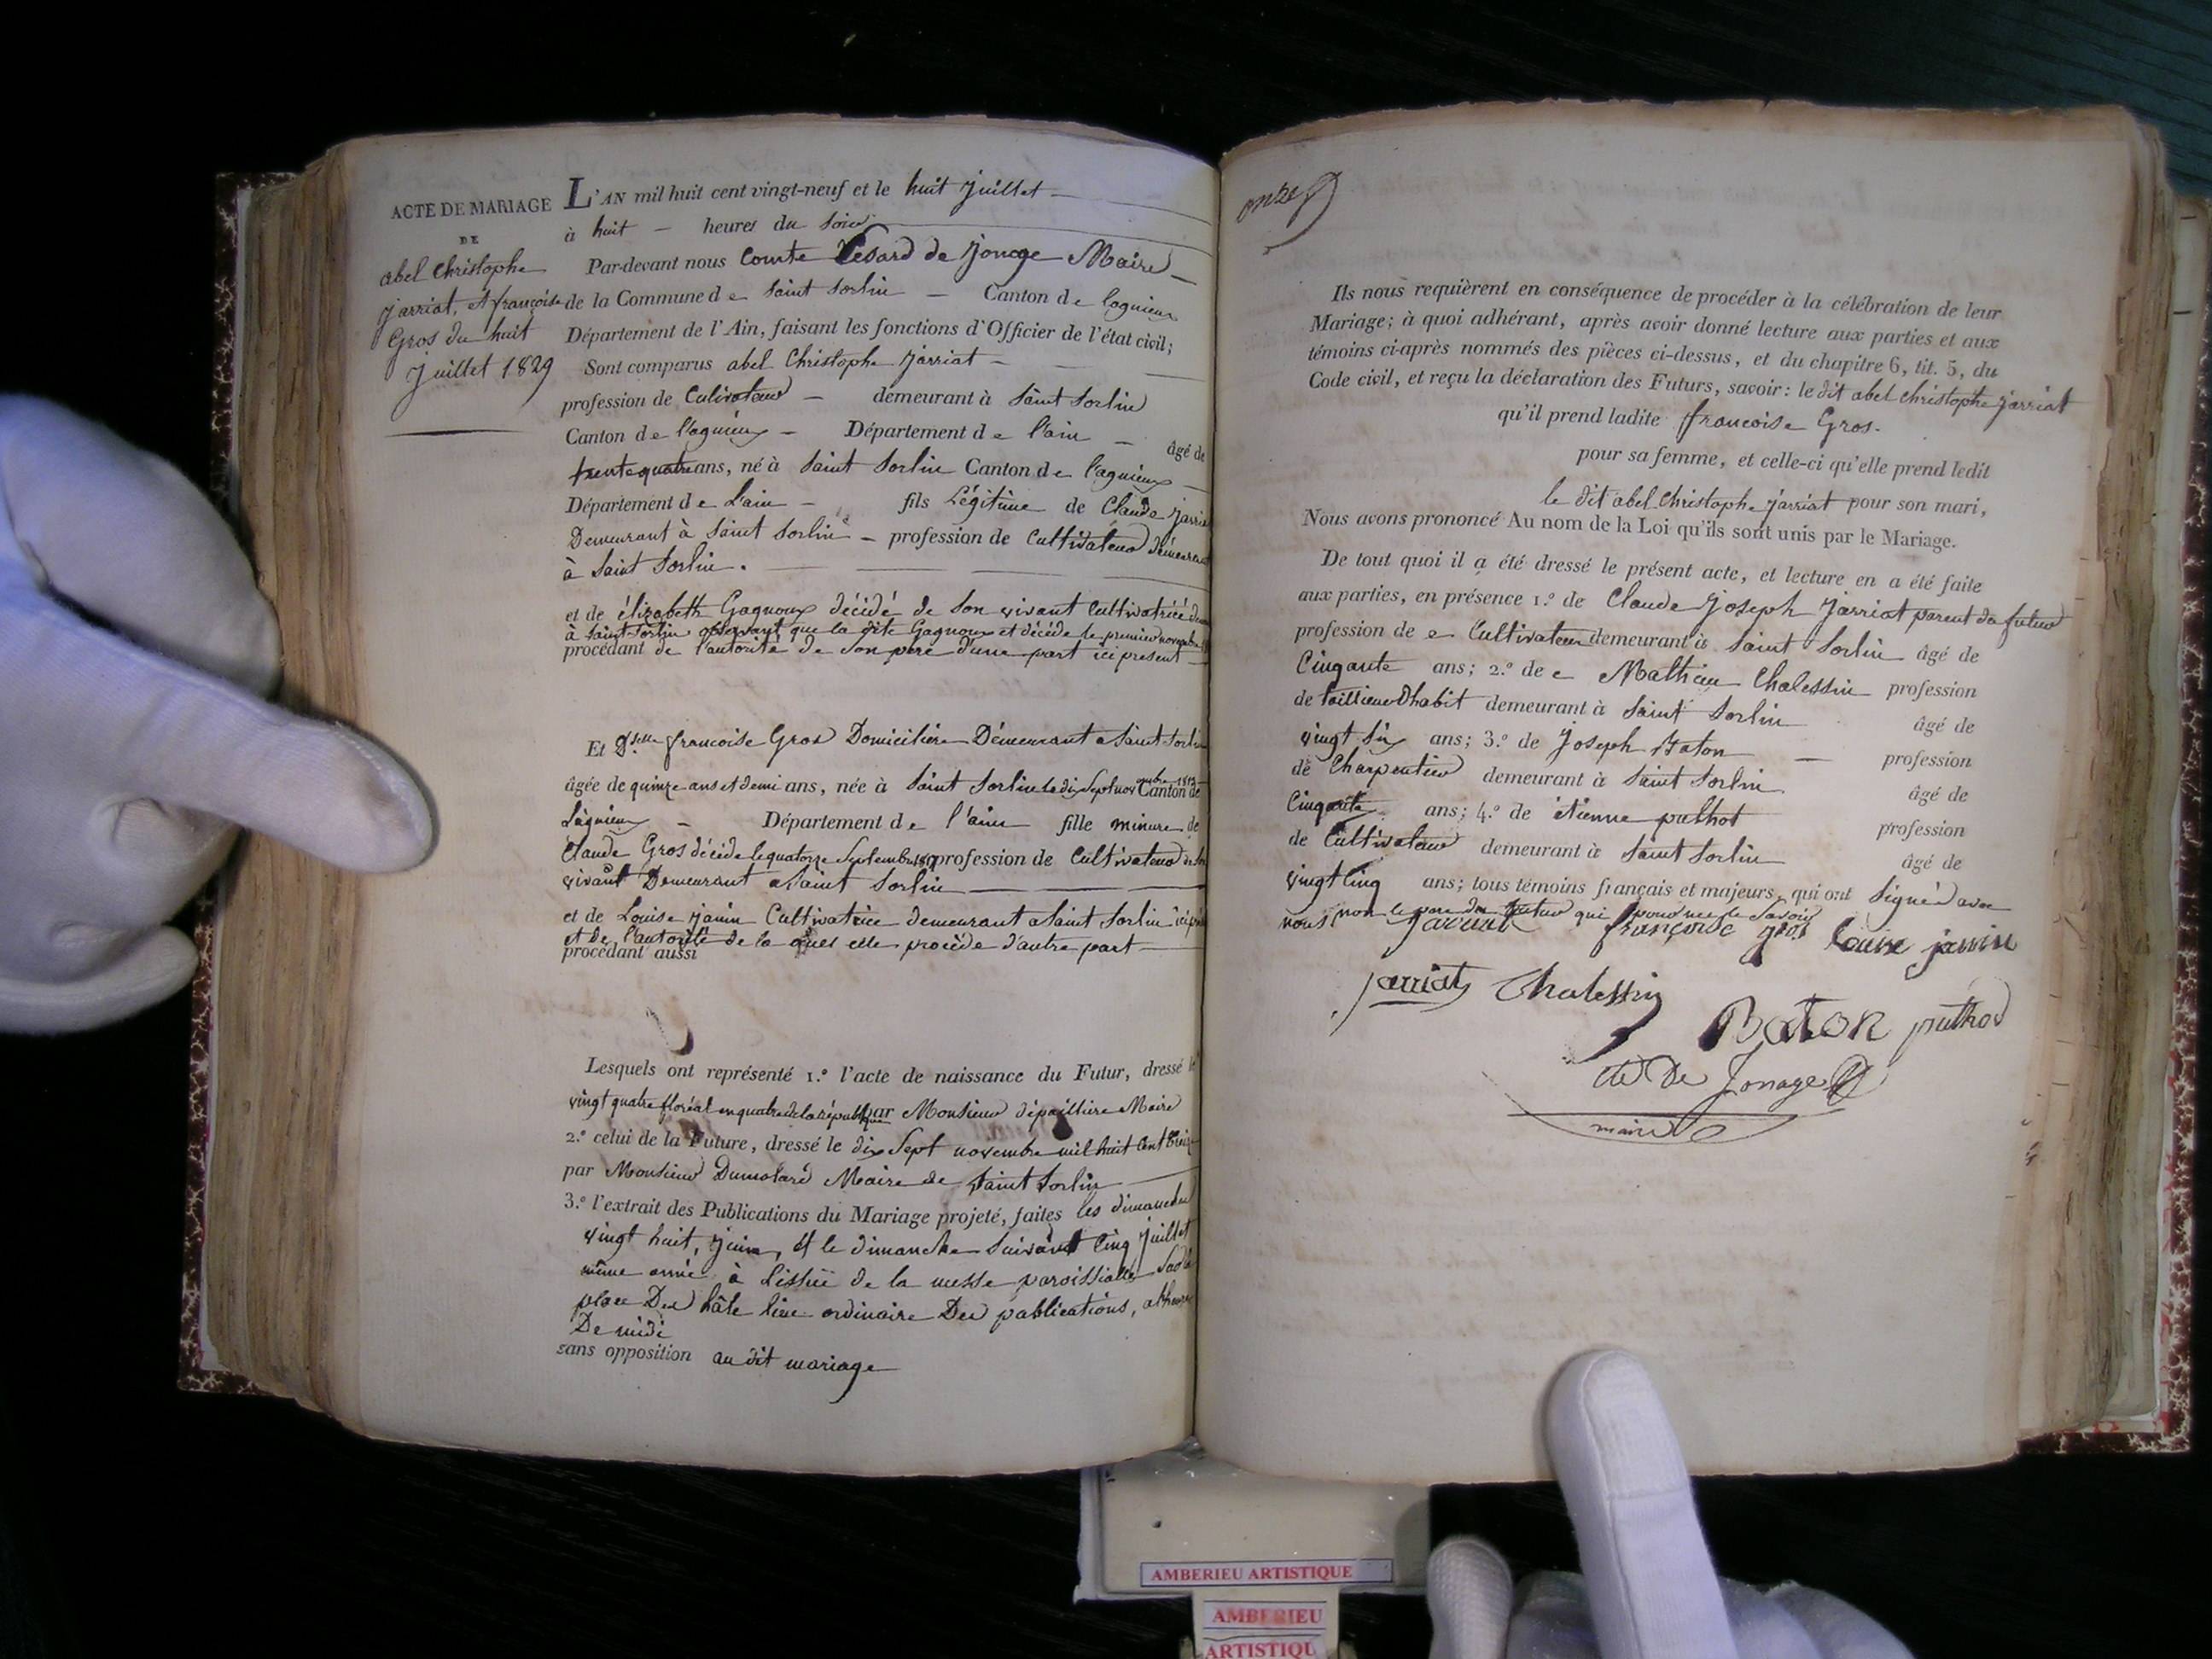 ACTE DE MARIAGE
DE
abel Christophe
jarriat, et françoise
Gros du huit
juillet 1829
L'AN mil huit cent vingt-neuf et le huit juillet
à huit heures du soir
Par-devant nous Comte Cesard de Jonage Maire
de la Commune de Saint Sorlin Canton de lagnieux
Département de l'Ain, faisant les fonctions d'Officier de l'état civil;
Sont comparus abel Christophe Jarriat
profession de Cultivateur demeurant à Saint Sorlin
Canton de l'agnieux Département de l'ain âgé de
trente quatre ans, né à Saint Sorlin Canton de l'agnieux
Département de L'ain fils Légitime de Claude Jarria
Demeurant à Saint Sorlin profession de Cultivateur demeurant
à Saint Sorlin.
et de élizabeth Gagnoux décidé de Son vivant Cultivatrice
à Saint Sorlin observant que la dite Gagnoux et décède le premier novembre
procédant de l'autorité de Son père d'une part ici present
Et Dselle françoise Gros Domicilière Demeurant a Saint Sorlin
âgée de quinze ans et demi ans, née à Saint Sorlin le dix Sept novembre 1813 Canton de
Lagnieux Département de l'ain fille mineure de
Claude Gros décidé le quatorze Septembre profession de Cultivateur de Son
vivant Demeurant a Saint Sorlin
et de Louise janin Cultivatrice demeurant a Saint Sorlin ici
et de l'autorité de la quel elle procède d'autre part
procédant aussi
Lesquels ont représenté 1.° l'acte de naissance du Futur, dressé le
vingt quatre floréal an quatre de la république par Monsieur dépaillière Maire
2.° celui de la Future, dressé le dix Sept novembre mil huit Cent treize
par Monsieur Dumolard Maire de Saint Sorlin
3.° l'extrait des Publications du Mariage projeté, faites les dimanches
vingt huit, juin, et le dimanche Suivant Cinq juillet
même année à Lissüe de la messe paroissialle
place Des hâle lieu ordinaire Des publications, a l'heure
De midi
sans opposition au dit mariage
onze
Ils nous requièrent en conséquence de procéder à la célébration de leur
Mariage; à quoi adhérant, après avoir donné lecture aux parties et aux
témoins ci-après nommés des pièces ci-dessus, et du chapitre 6, tit. 5, du
Code civil, et reçu la déclaration des Futurs, savoir: le dit abel christophe jarriat
qu'il prend ladite françoise Gros.
pour sa femme, et celle-ci qu'elle prend ledit
le dit abel christophe jarriat pour son mari,
Nous avons prononcé Au nom de la Loi qu'ils sont unis par le Mariage.
De tout quoi il a été dressé le présent acte, et lecture en a été faite
aux parties, en présence 1.° de Claude Joseph Jarriat parent du futur
profession de Cultivateur demeurant à Saint Sorlin âgé de
Cinqante ans; 2.° de Mathieu Chalessin profession
de taillieur Dhabit demeurant à Saint Sorlin âgé de
vingt Six ans; 3.° de Joseph Baton profession
de Charpentier demeurant à Saint Sorlin âgé de
Cinqante ans; 4.° de étienne puthot profession
de Cultivateur demeurant à Saint Sorlin âgé de
vingt Cinq ans; tous témoins français et majeurs, qui ont Signéd avec
nous non le pere du futur qui pour ne le Savoir
Jarriat françoise gros Louise janin
jarriat Chalessin
Baton puthod
cte De Jonage
maire
AMBERIEU ARTISTIQUE
AMBERIEU
ARTISTIQU